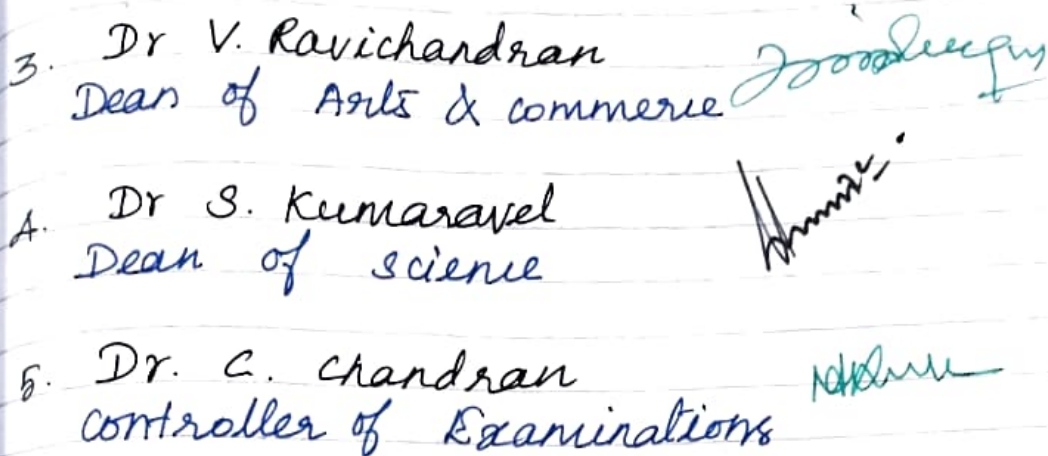 3. Dr V. Ravichandran
Dean of Arts & commerce
4. Dr S. Kumaravel
Dean of science
5. Dr. C. Chandran
Controller of Examinations